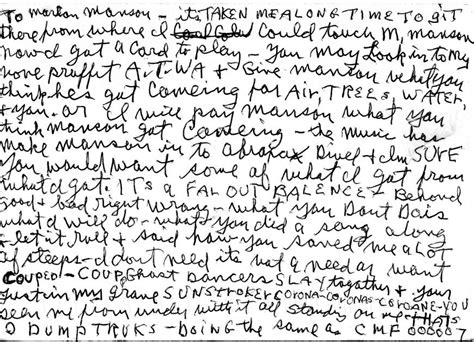 To marlon manson - its TAKEN ME ALONG TIME TO git
there from where I could touch M, manson
now I got a Card to play - You may Look in to My
none proffit A.T.WA & Give manson what you
think hes got comeing for Air, TREES, WATER,
& you. or I will pay Manson what you
think manson got comeing - the music has
make manson in to abraxas Divel & I'm SURE
you would want some of what I got from
what I got. IT'S a FAR OUT BALENCE - Beyond
good & bad right wrong - what you Dont Dois
what I will do - what you did a song along
& let it roll & said how you saved me a Lot
of steeps - I dont need it its not a need or want
COUPED - COUP Ghost Dancers SLAY together &
Just in my grave SUNSTROKER CORONA-CORONAS-CORONAE-YOU
seen me from under with it all standing on me THATS
2 DUMP TRUKS - DOING the same as CMF 000007